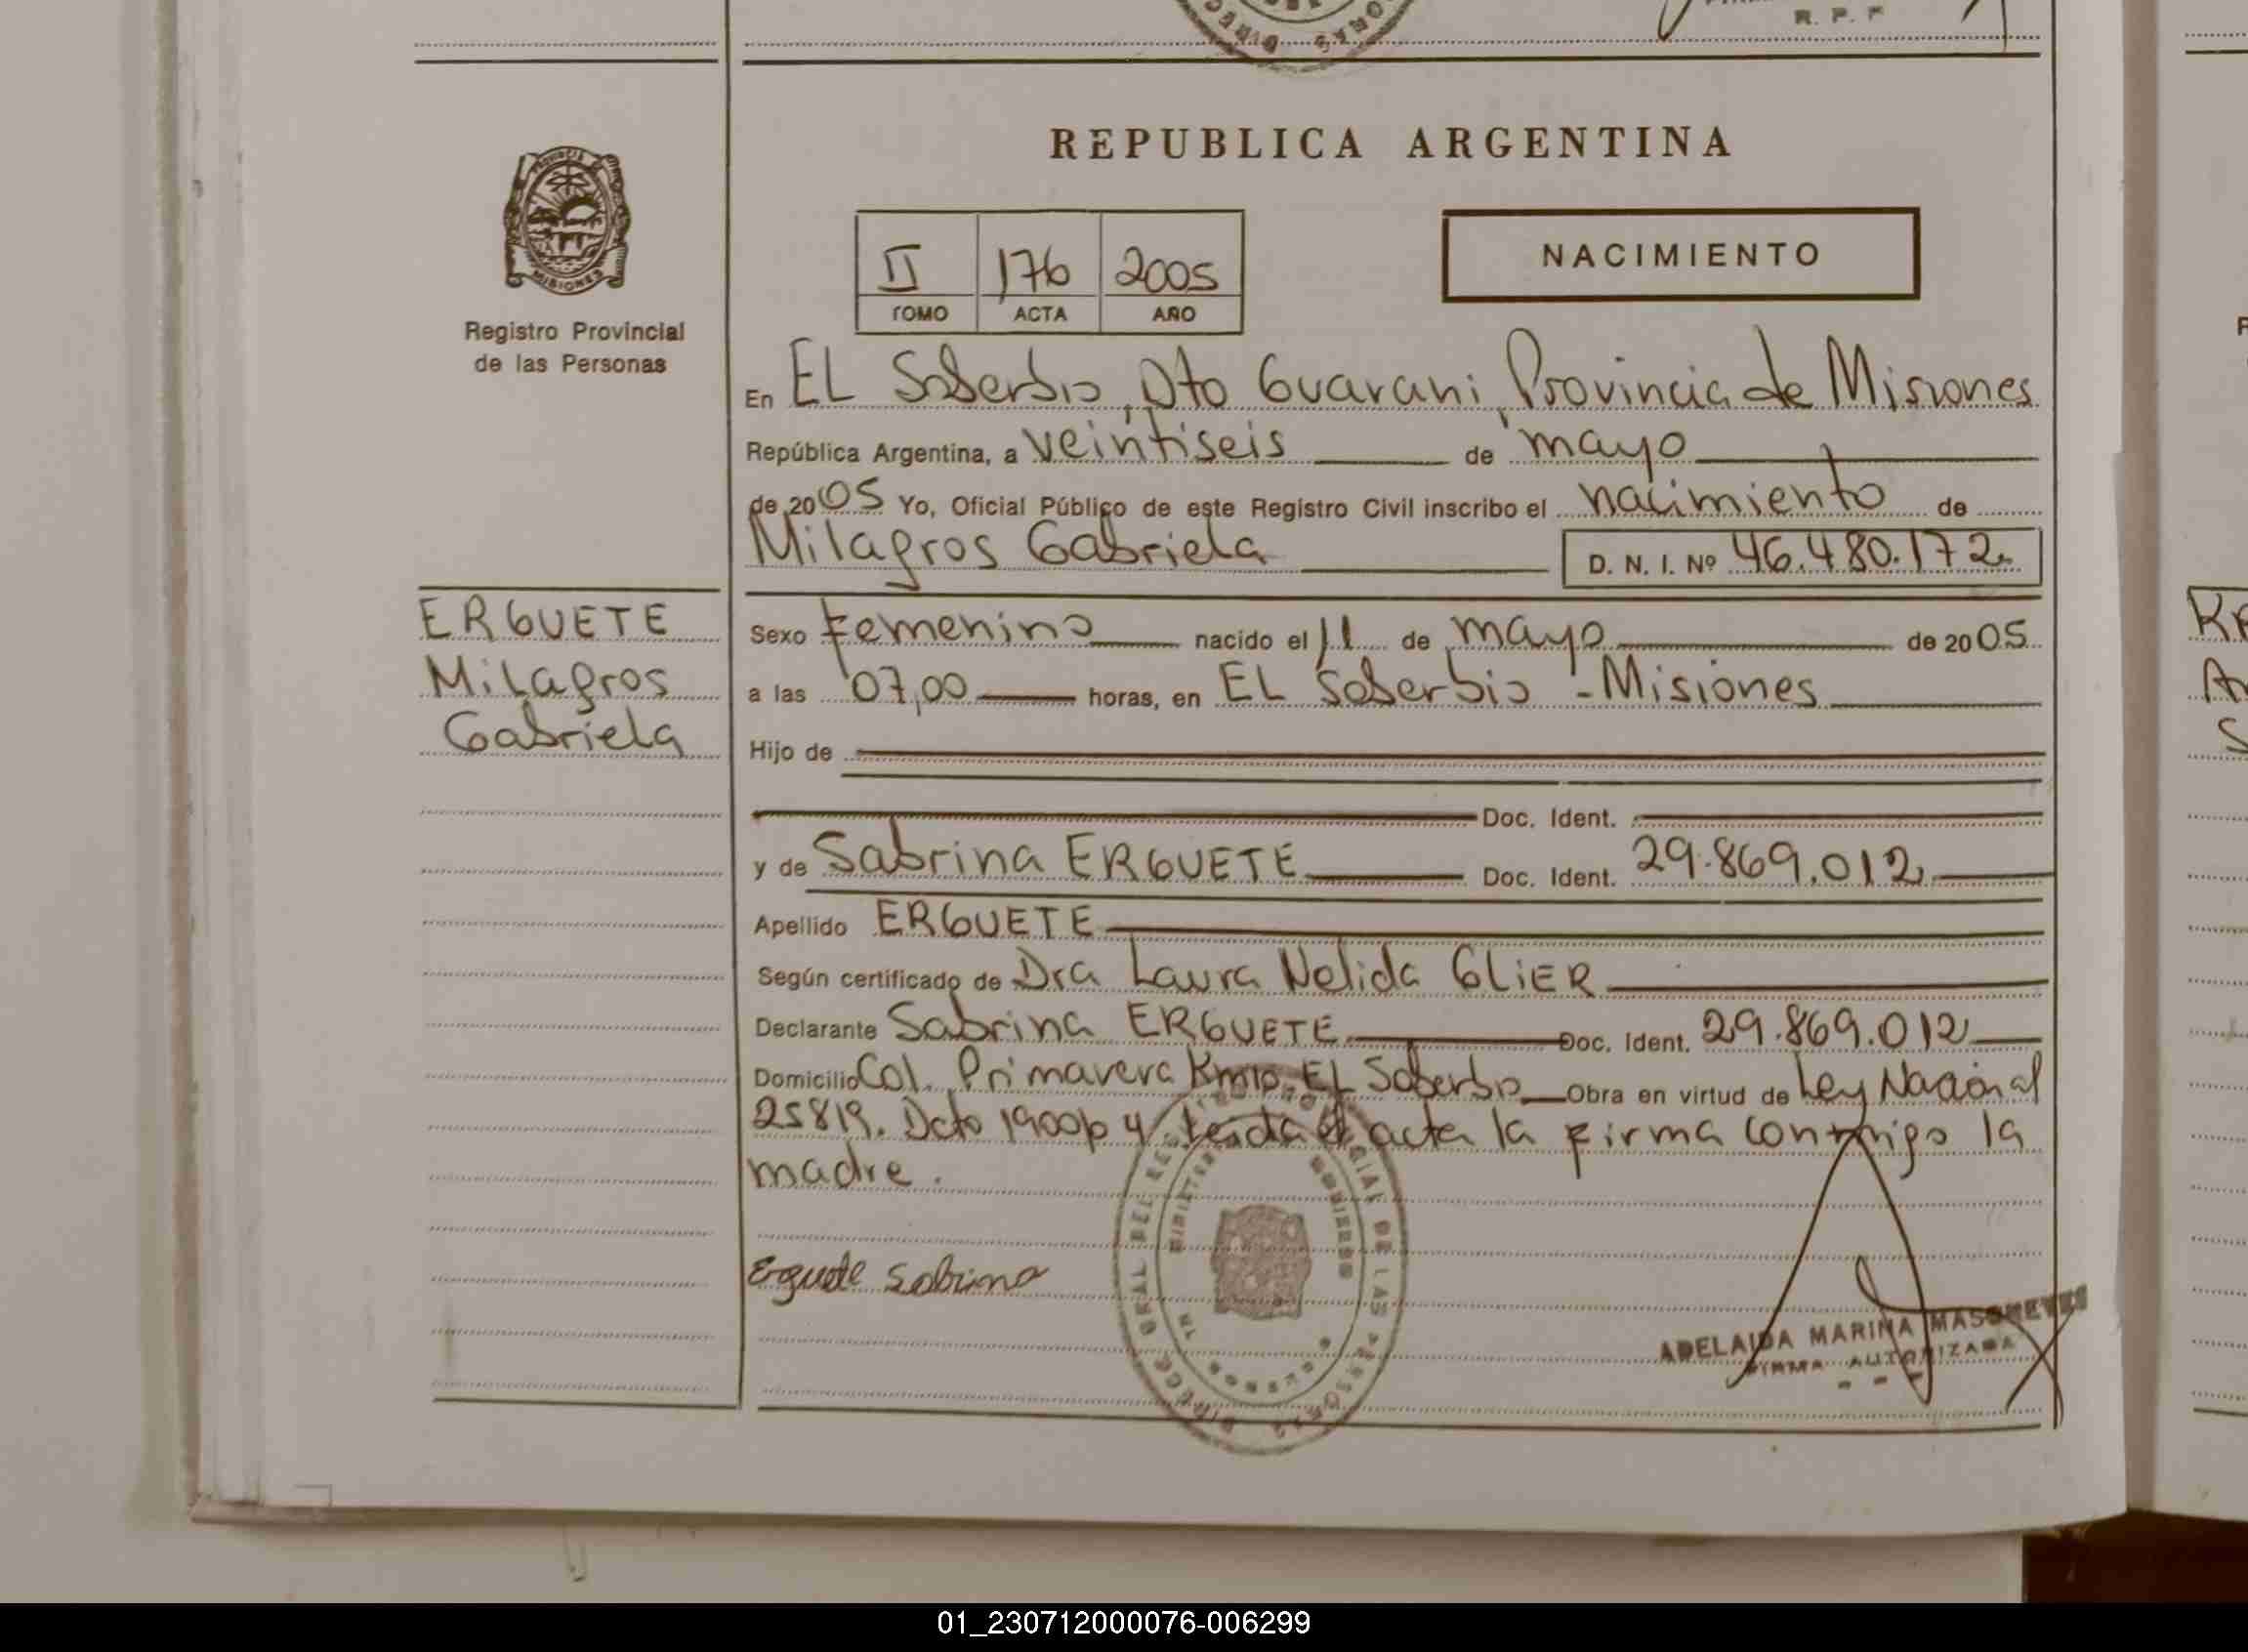 R. P. F
REPUBLICA ARGENTINA
PROVINCIA
MISIONES
Registro Provincial
de las Personas
II 176 2005
TOMO ACTA AÑO
NACIMIENTO
En EL Soberbio, Dto Guarani, Provincia de Misiones
República Argentina, a veintiseis de mayo
de 2005 Yo, Oficial Público de este Registro Civil inscribo el nacimiento de
Milagros Gabriela D. N. I. Nº 46.480.172
ERGUETE
Milagros
Gabriela
Sexo femenino nacido el 11 de mayo de 2005
a las 07,00 horas, en EL Soberbio - Misiones
Hijo de
Doc. Ident.
y de Sabrina ERGUETE Doc. Ident. 29.869.012
Apellido ERGUETE
Según certificado de Dra Laura Nelida GLiER
Declarante Sabrina ERGUETE Doc. Ident. 29.869.012
Domicilio Col. Primavera Km10. EL Soberbio Obra en virtud de Ley Nacional
25819. Dcto 1900/04. Leida el acta la firma conmigo la
madre.
Erguete Sabrina
ADELAIDA MARINA
FIRMA AUTORIZADA
01_230712000076-006299